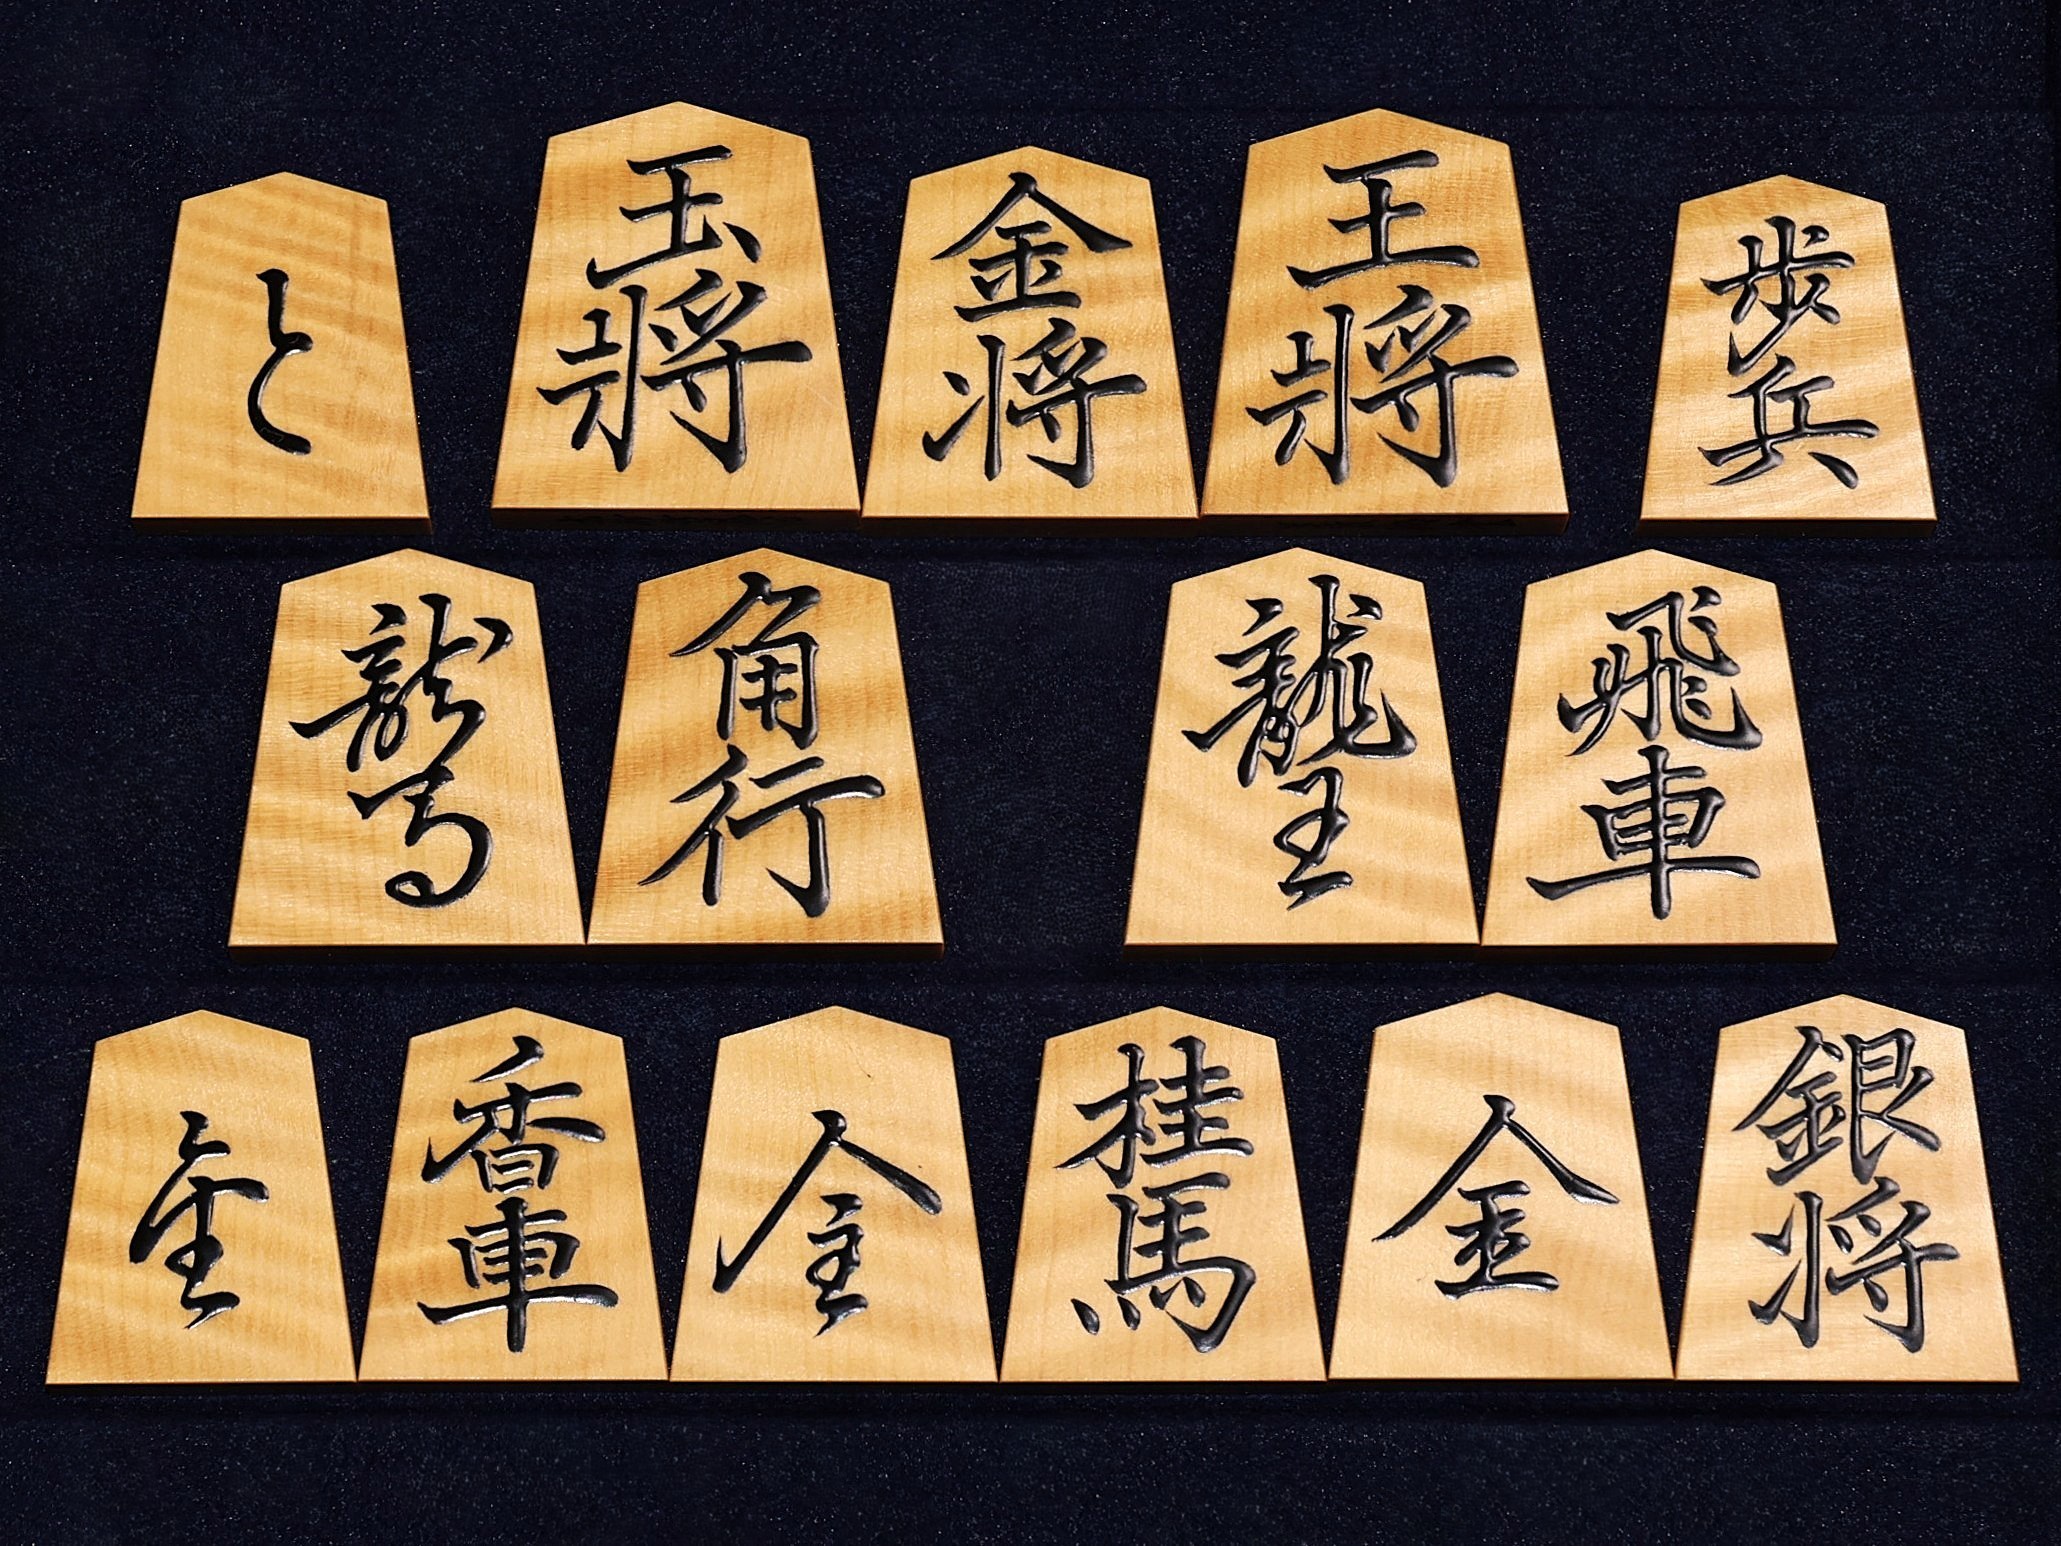 と
玉將
金将
王將
歩兵
龍馬
角行
龍王
飛車
金
香車
金
桂馬
金
銀将